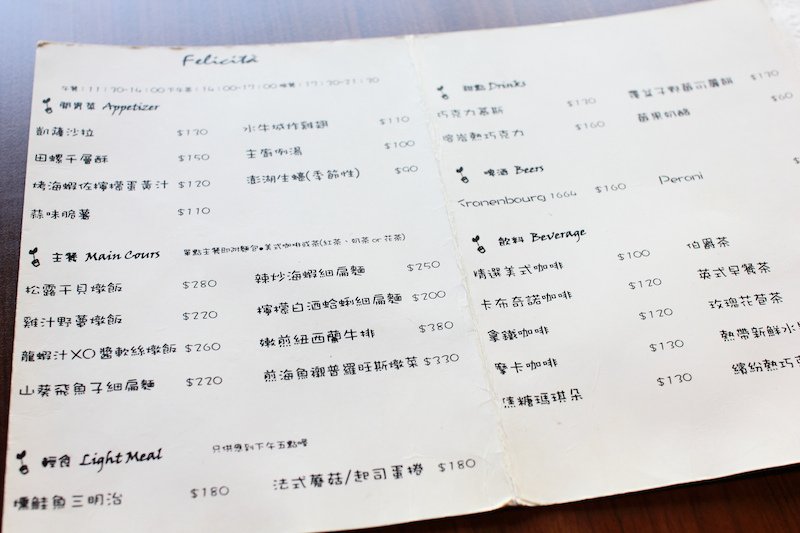 Felicità
開胃菜 Appetizer
凱薩沙拉 $130
田螺千層酥 $150
烤海蝦佐檸檬蛋黃汁 $120
蒜味脆薯 $110
水牛城炸雞翅 $110
主廚例湯 $100
澎湖生蠔(季節性) $90
主餐 Main Cours 單點主餐即附麵包●美式咖啡或茶(紅茶、奶茶 or 花茶)
松露干貝燉飯 $280
雞汁野蕈燉飯 $220
龍蝦汁XO醬軟絲燉飯 $260
山葵飛魚子細扁麵 $220
辣炒海蝦細扁麵 $250
檸檬白酒蛤蜊細扁麵 $200
嫩煎紐西蘭牛排 $380
煎海魚襯普羅旺斯燉菜 $330
輕食 Light Meal 只供應到下午五點喔
燻鮭魚三明治 $180
法式蘑菇/起司蛋捲 $180
甜點 Drinks
巧克力慕斯 $130
熔岩熱巧克力 $160
$130
莓果奶酪
啤酒 Beers
Kronenbourg 1664 $160
Peroni
飲料 Beverage
精選美式咖啡 $100
卡布奇諾咖啡 $120
拿鐵咖啡 $120
摩卡咖啡 $130
焦糖瑪琪朵 $130
伯爵茶
英式早餐茶
玫瑰花苞茶
熱帶新鮮水
繽紛熱巧克